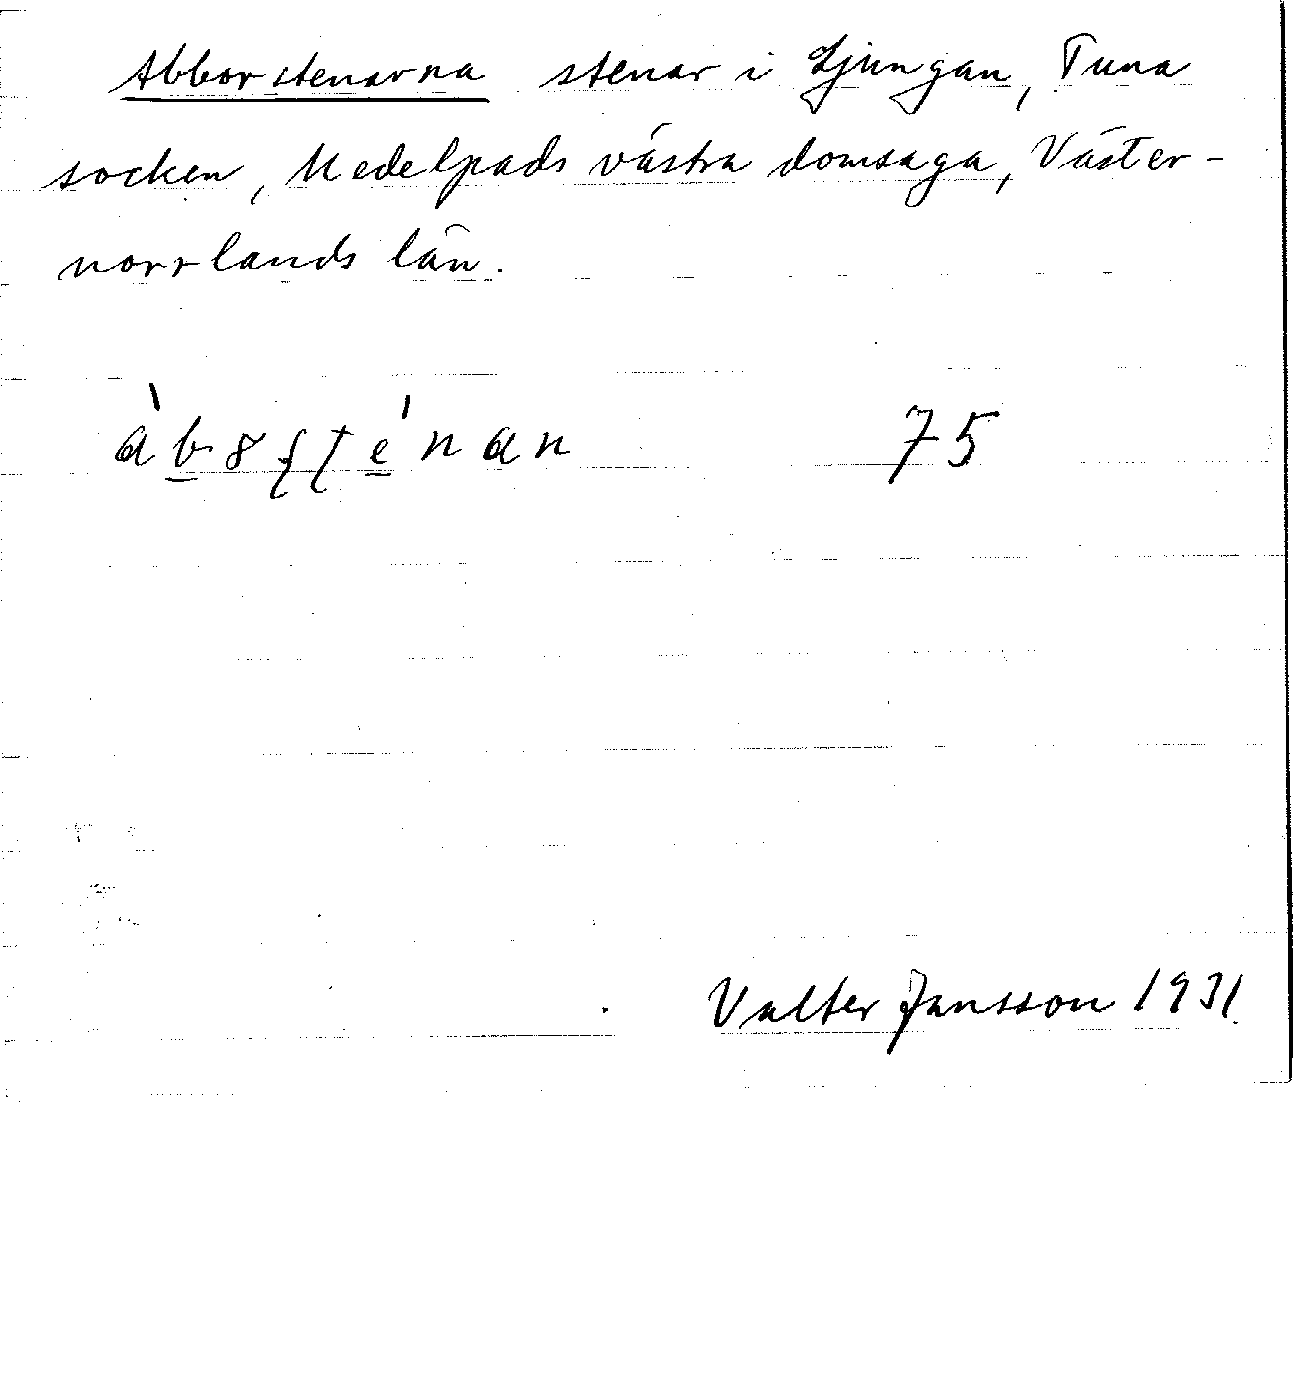 Abborstenarna stenar i Ljungan, Tuna
socken, Medelpads västra domsaga, Väster-
norrlands län.
75
Valter Jansson 1931